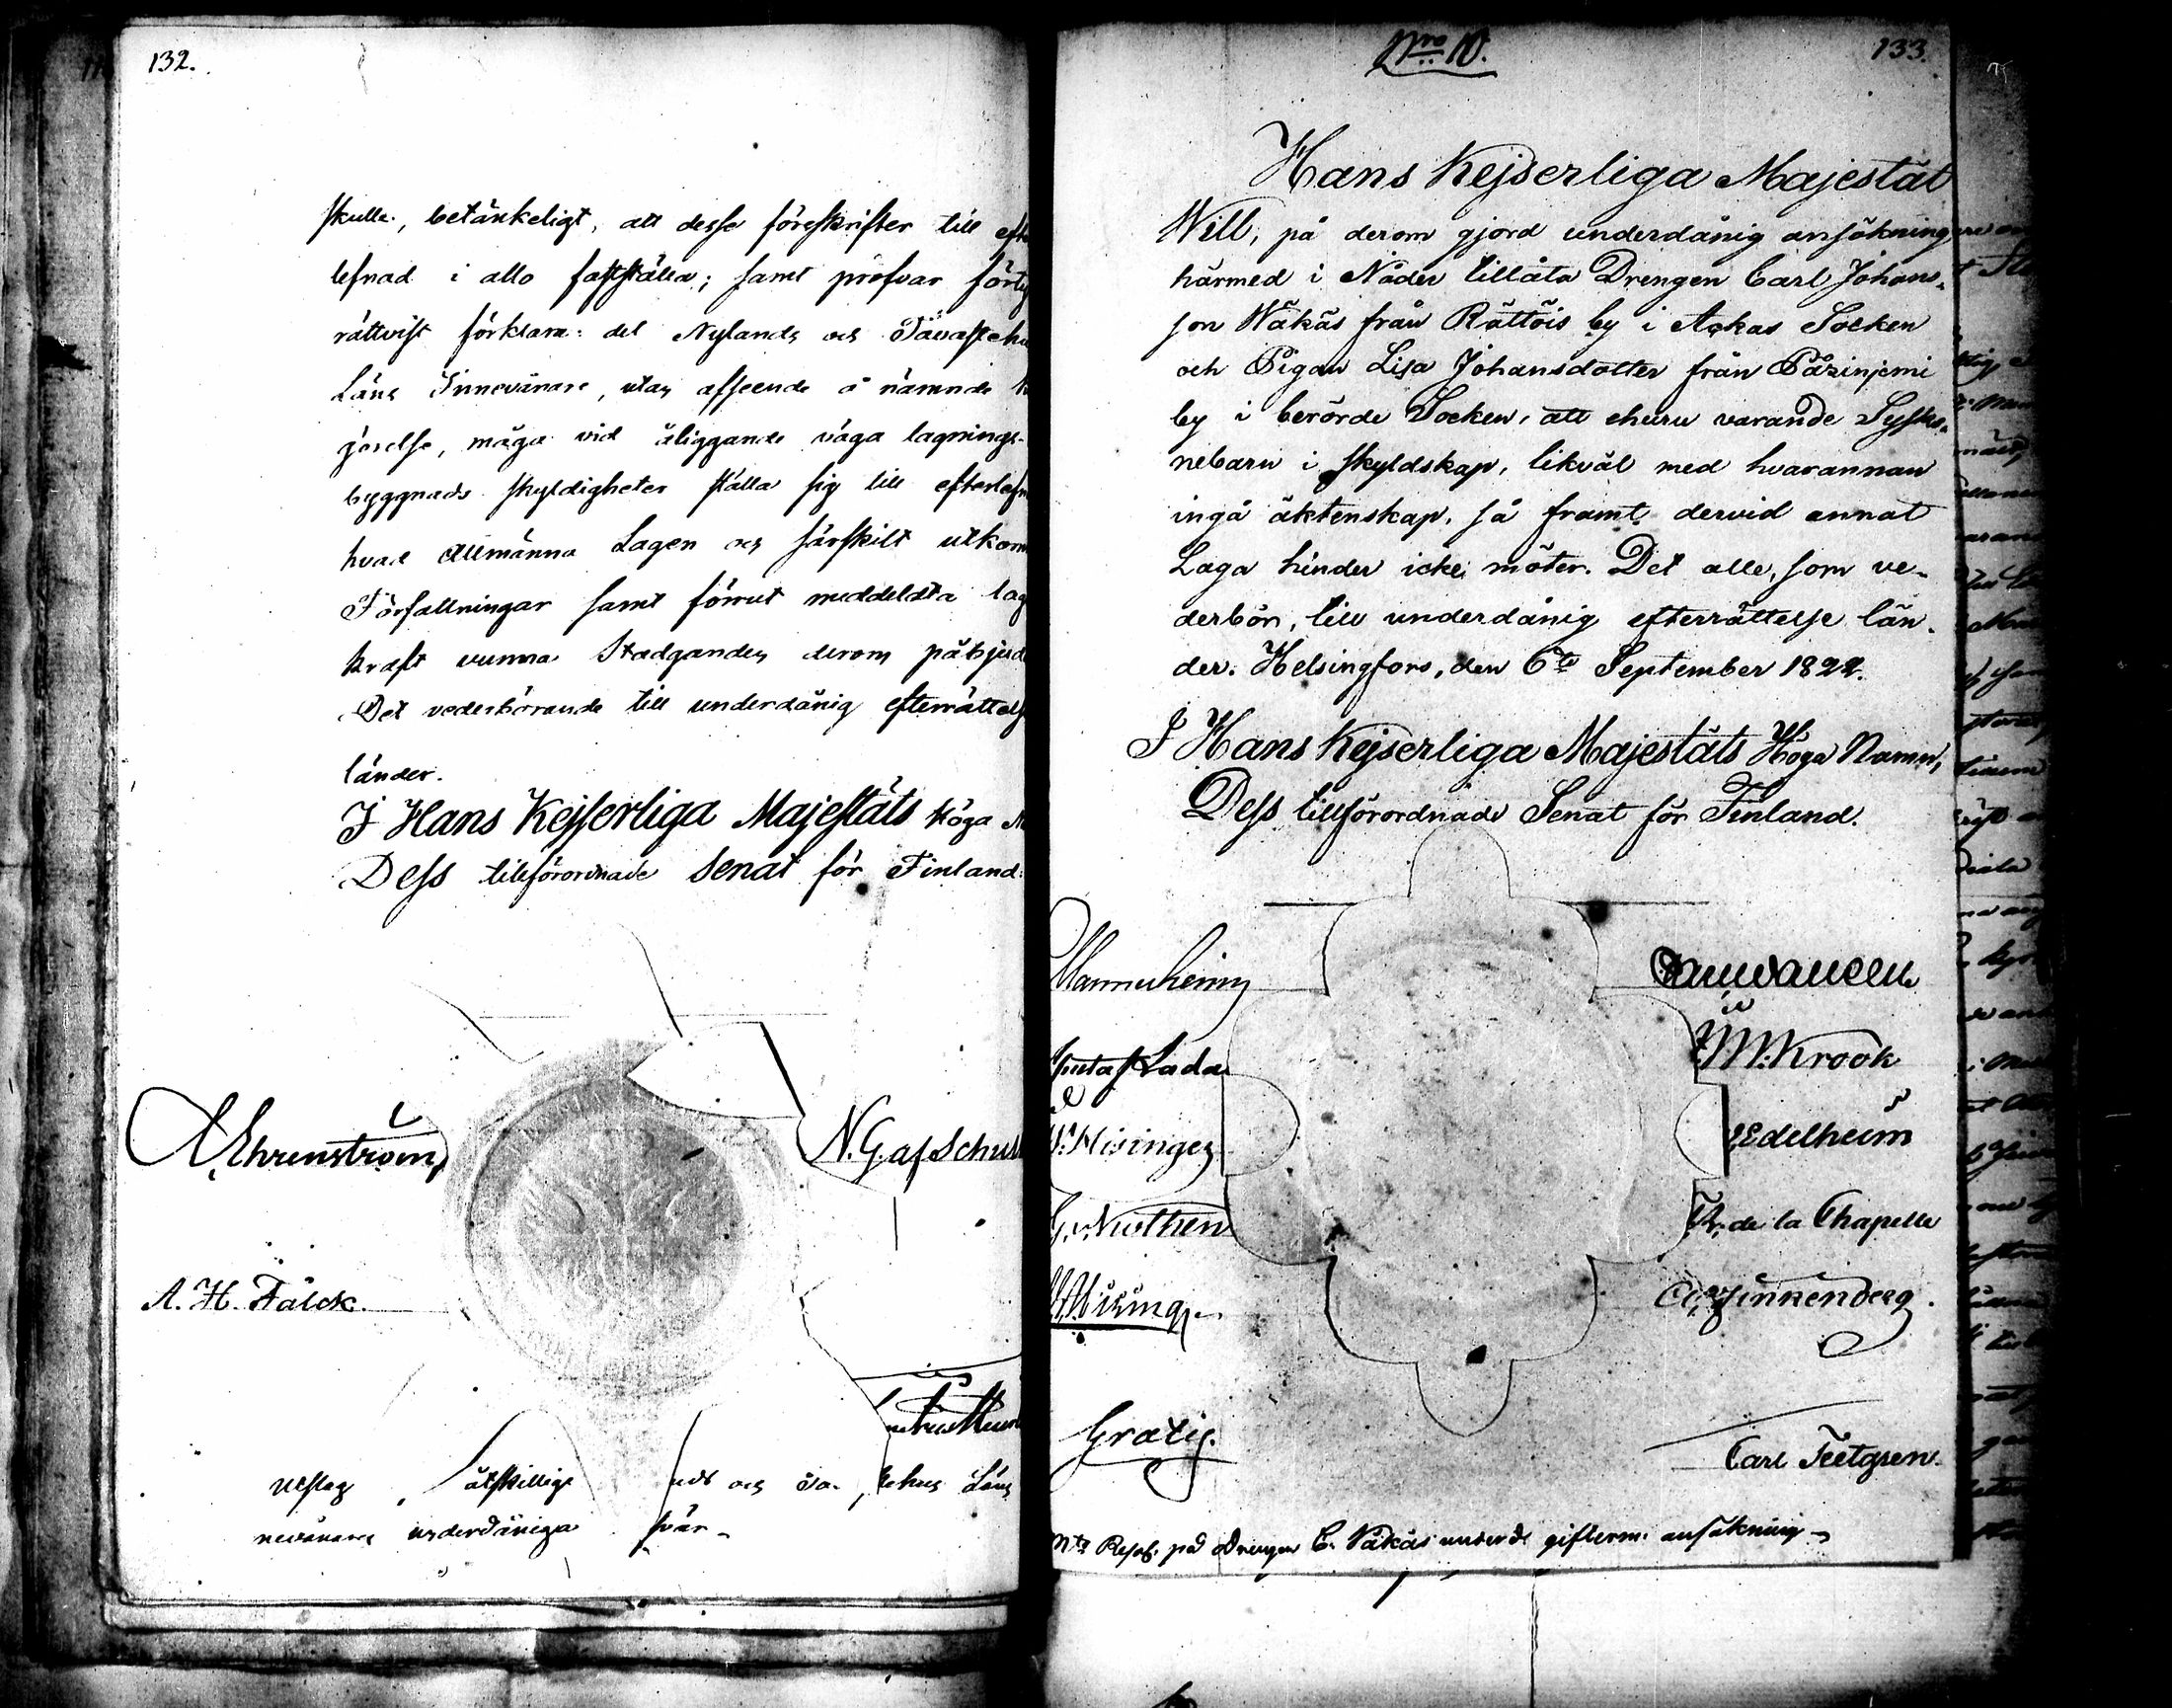 132.
skulle, betänkeligt, att desse föreskrifter till
lefnad i allo fastställa; samt pröfvar
rättvist förklara: det Nylands och Tavastehu
Läns Innevånare, utan afseende å nämnde
görelse, måga vid åliggande väga lagnings-
byggnads skyldigheter ställa sig till efterlefn
hvad Allmänna Lagen och särskilt utkom
Författningar samt förrut meddeldta lag
kraft vunna Stadganden derom påbjud
Det vederbörande till underdånig efterrättels
länder.
I Hans Kejserliga Majestäts höga
Dess tillförordnade Senat för Finland:
Ehrenström
N. G. af Schul
A. H. Falck
Utslag åtskillige och Läns
underdåniga
Nro 10.
133.
Hans Kejserliga Majestät
Will, på derom gjord underdånig ansökning,
härmed i Nåder tillåta Drengen Carl Johans-
son Wäkäs från Rättöis by i Ackas Socken
och Pigan Lisa Johansdotter från Påzinjemi
by i berörde Socken, att ehuru varande Sysko-
nebarn i skyldskap, likväl med hvarannan
ingå äktenskap, så framt dervid annat
Laga hinder icke möter. Det alle, som ve-
derbör, till underdånig efterrättelse län-
der. Helsingfors, den 6te September 1822.
I Hans Kejserliga Majestäts Höga Namn,
Dess tillförordnade Senat för Finland.
Mannerheim
Gustaf Ladau
M: Krook
Hisinger
Edelheim
de la Chapelle
Finkenberg.
Gratis.
Carl Teetgren.
Resol. på Drengen C. Wäkäs underd. gifterm. ansökning